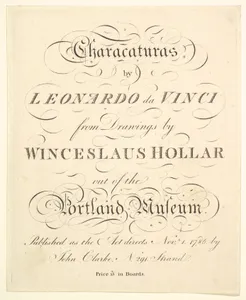 Characaturas
by
LEONARDO da VINCI
from Drawings by
WINCESLAUS HOLLAR
out of the
Portland Museum
Published as the Act directs Novr. 1. 1786 by
John Clarke, Strand
Price in Boards.